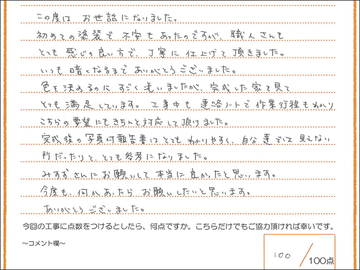 この度は お世話になりました。
初めての塗装で 不安もあったのですが、職人さんも
とても 感じの良い方で、丁寧に 仕上げて頂きました。
いつも 暗くなるまで ありがとうございました。
色を決めるのに すごく迷いましたが、完成した家を見て
とても 満足しています。工事中も 連絡ノートで 作業行程もわかり
こちらの要望にもきちんと対応して頂けました。
完成後の写真付報告書はとても わかりやすく、自分達でて 見えない
所だったりと、とても参考になりました。
みすずさんに お願いして 本当に 良かったと思います。
今度も、何かあったら お願いしたいと思います。
ありがとうございました。
今回の工事に点数をつけるとしたら、何点ですか。こちらだけでもご協力頂ければ幸いです。
〜コメント欄〜
100/100点